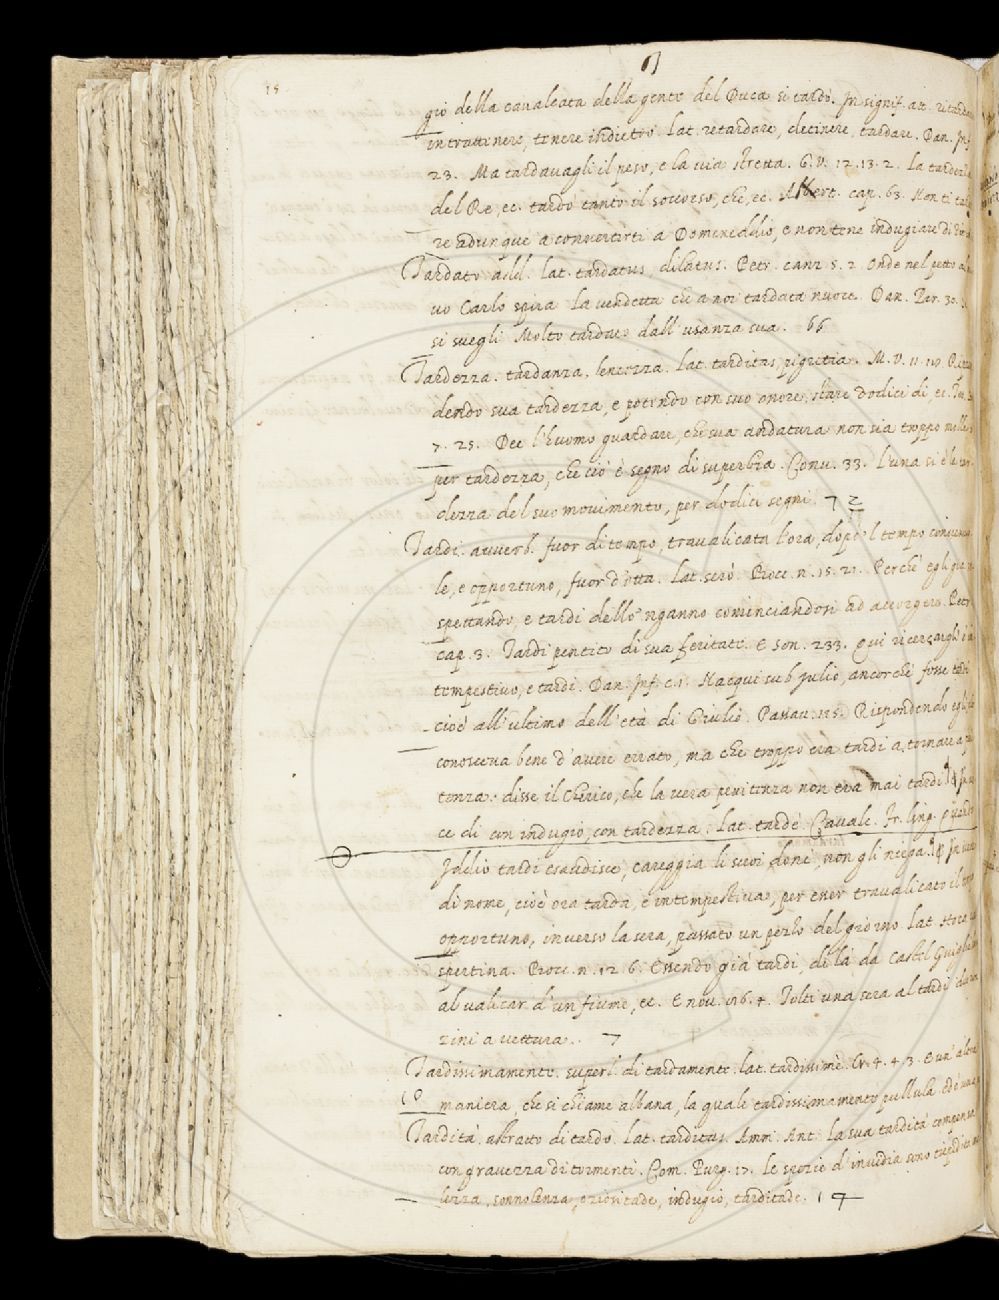 15
gio della cavalcata della gente del Duca si tardò. In signif. att. ritardare
intrattenere, tenere indietro. Lat. retardare, detinere, tardare. Dan. Inf.
23. Ma tardavagli il peso, e la via stretta. G. V. 12. 13. 2. La tardezza
del Re, ec. tardò tanto il soccorso, che, ec. Albert. cap. 63. Non ti tar
re adunque a convertirti a Domeneddio, e non tene indugiare di
Tardato add. lat. tardatus, dilatus. Petr. canz. 5. 2. Onde nel petto al
vo Carlo spira La vendetta ch a noi tardata nuoce. Dan. Par. 30.
si svegli Molto tardato dall' usanza sua. 66
Tardezza. tardanza, lentezza. Lat. tarditas, pigritia. M. V. 11.
dendo sua tardezza, e potendo con suo onore, stare dodici dì, ec.
7. 25. Dee l'huomo guardare, che sua andatura non sia troppo molle
per tardezza, che ciò è segno di superbia. Conv. 33. L'una si è la tar
dezza del suo movimento, per dodici segni. 72
Tardi. avverb. fuor di tempo, travalicata l'ora, dopo 'l tempo convenevo
le, e opportuno, fuor d'otta. Lat. serò. Bocc. n. 15. 21. Perchè egli già
spettando, e tardi dello 'nganno cominciandosi ad accorgere. Petr.
cap. 3. Tardi pentito di sua feritate. E Son. 233. Qui ricercargli è in
tempestivo, e tardi. Dan. Inf. c. 1. Nacqui sub Julio, ancorchè fosse tardi
cioè all' ultimo dell' età di Giulio. Passav. 125. Rispondendo egli
conosceva bene d'avere errato, ma che troppo era tardi a tornare a
tenza. disse il Cherico, che la vera penitenza non era mai tardi.
ce di con indugio, con tardezza. Lat. tardè. Cavalc. Fr. ling.
Iddio tardi esaudisce, careggia li suoi doni, non gli niega.
di nome, cioè ora tarda, e intempestiva, per esser travalicato il
opportuno, inverso la sera, passato un pezzo del giorno. Lat. Hora
spertina. Bocc. n. 12. 6. Essendo già tardi, di là da Castel Guiglielmo
al valicar d'un fiume, ec. E nov. 4. Tolti una sera al tardi
zini a vettura. 7
Tardissimamente. superl. di tardamente. lat. tardissimè. Cr. 4. 4. 3.
maniera, che si chiama albana, la quale tardissimamente pullula
Tardità. astratto di tardo. Lat. tarditas. Amm. Ant. la sua tardità compensa
con gravezza di tormenti. Com. Purg. 17. Le spezie d'invidia sono
lezza, sonnolenza, oziositade, indugio, tarditade.